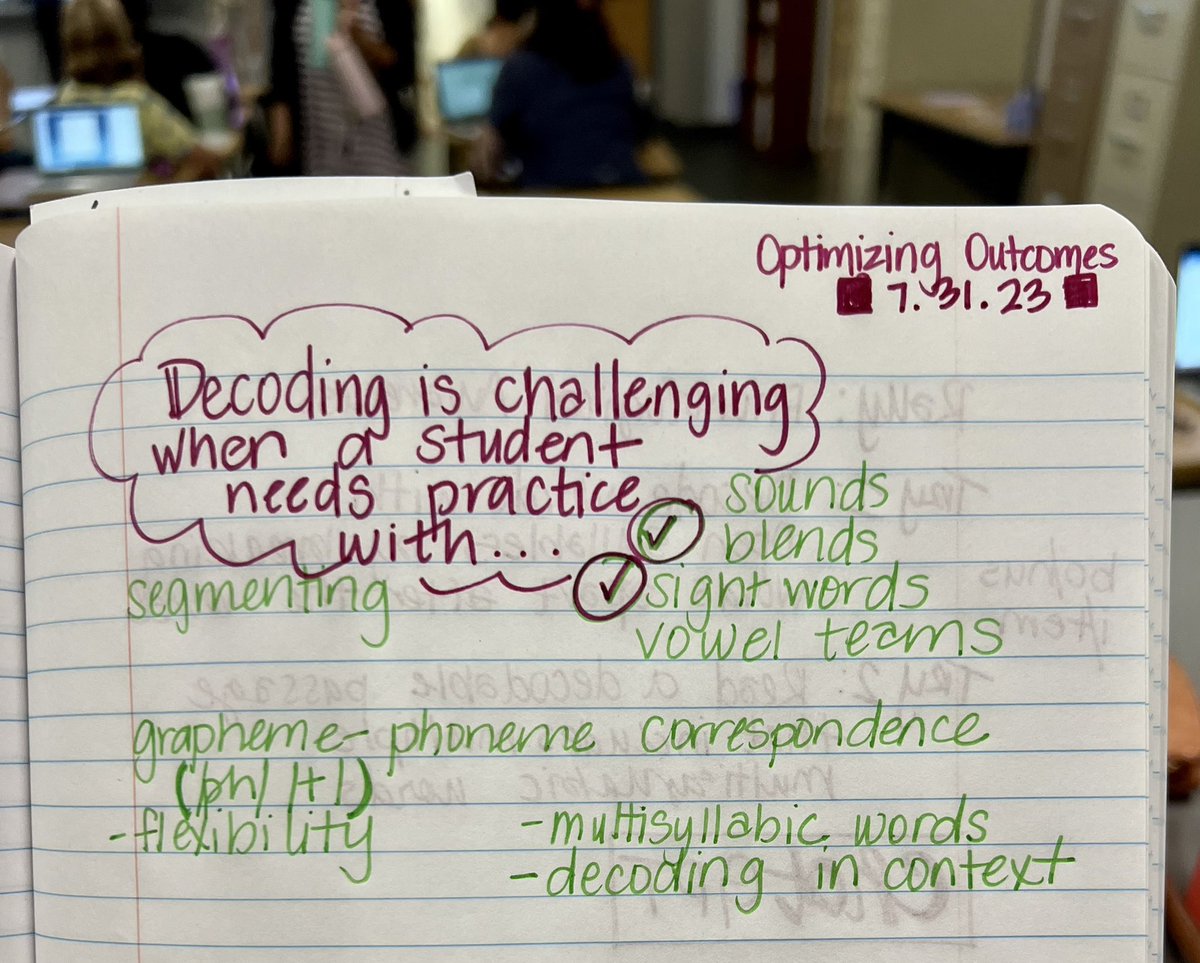 Optimizing Outcomes
7.31.23
Decoding is challenging
when a student
needs practice
with...
sounds
blends
segmenting
sight words
vowel teams
grapheme-phoneme correspondence
(/ph/ /t/)
-flexibility
-multisyllabic words
-decoding in context